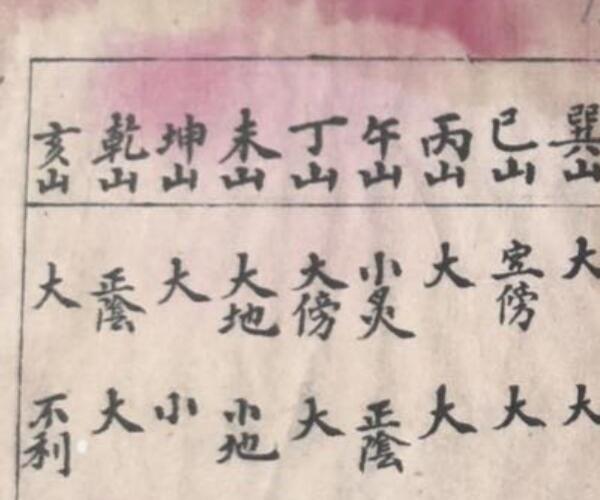 巽山 大 大
巳山 傍 大
丙山 大 大
午山 小炙 正陰
丁山 大傍 大
未山 大地 小地
坤山 大 小
乾山 正陰 大
亥山 大 不利